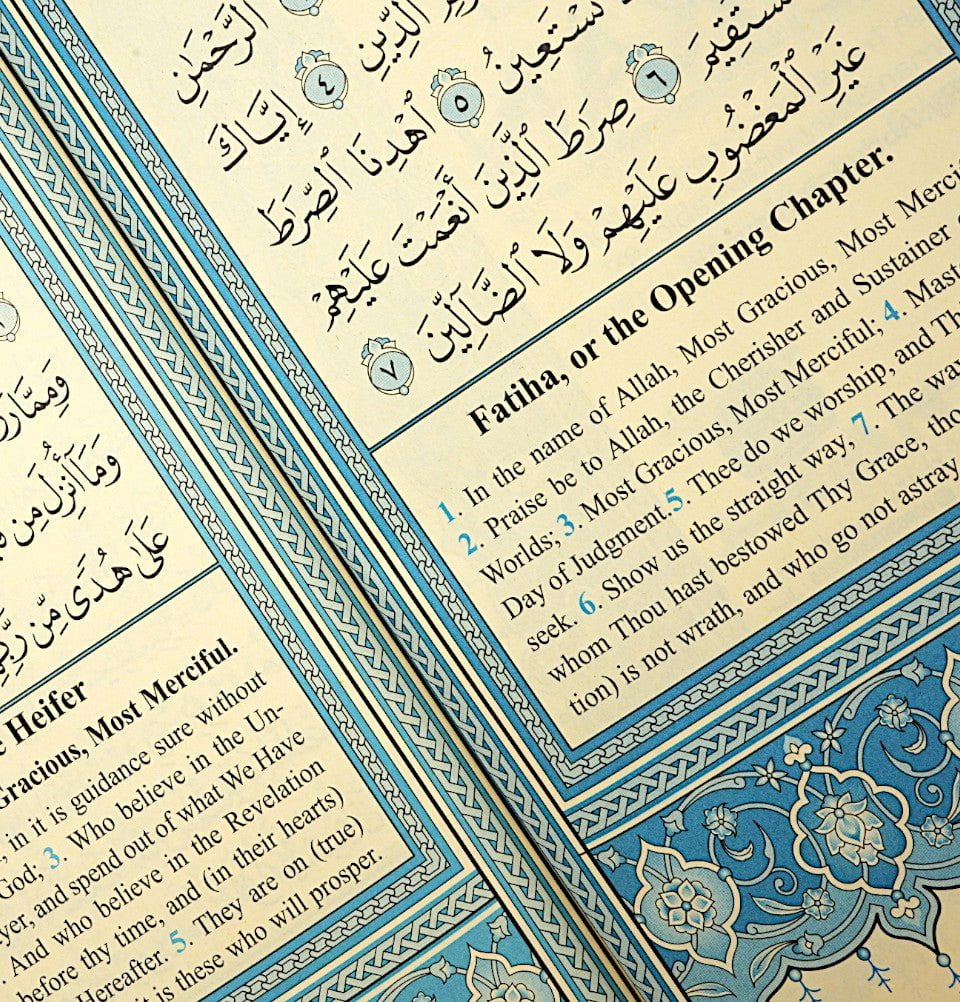 ٱلرَّحْمَٰنِ
ٱلدِّينِ ٤ إِيَّاكَ
نَسْتَعِينُ ٥ ٱهْدِنَا ٱلصِّرَٰطَ
٦ صِرَٰطَ ٱلَّذِينَ أَنْعَمْتَ عَلَيْهِمْ
غَيْرِ ٱلْمَغْضُوبِ عَلَيْهِمْ وَلَا ٱلضَّآلِّينَ ٧
Fatiha, or the Opening Chapter.
1. In the name of Allah, Most Gracious, Most Mercif
2. Praise be to Allah, the Cherisher and Sustainer
Worlds; 3. Most Gracious, Most Merciful; 4. Mast
Day of Judgment.5. Thee do we worship, and Th
seek. 6. Show us the straight way, 7. The wa
whom Thou hast bestowed Thy Grace, tho
tion) is not wrath, and who go not astray
وَمِمَّا
وَمَآ أُنزِلَ مِن
عَلَىٰ هُدًى مِّن
Heifer
Gracious, Most Merciful.
, in it is guidance sure without
God; 3. Who believe in the Un-
yer, and spend out of what We Have
. And who believe in the Revelation
before thy time, and (in their hearts)
Hereafter. 5. They are on (true)
it is these who will prosper.